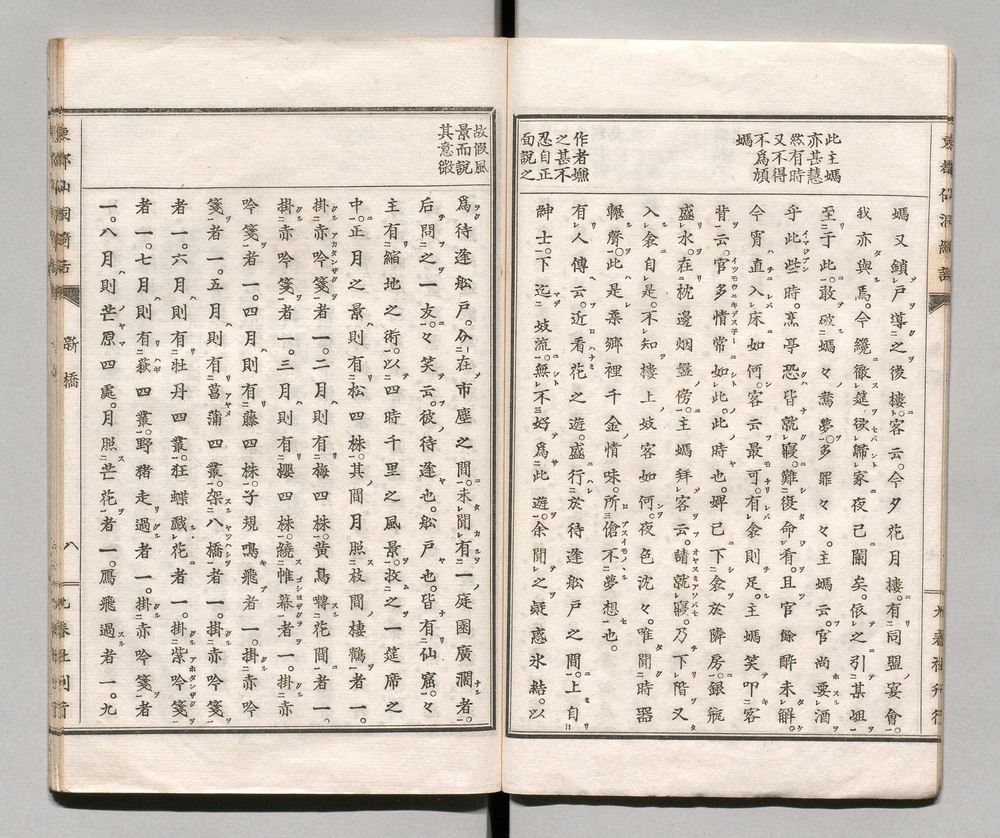 此主媽
亦甚慧
然有時
又不得
不爲頑
媽
作者憮
之甚不
忍自正
面說之
媽又鎖戶導之後樓。客云。今夕花月樓。有同盟宴會。
我亦與焉。今纔徹筵。欲歸家夜已闌矣。依之引某姐
至于此。敢破媽々驚夢。多罪々々。主媽云。官尚要酒
乎此些時。烹亭恐皆就寢。難從命有。且官餘醉未解。
今宵直入床如何。客云最可。有衾則足。主媽笑叩客
背云。官多情常如此。此時也。婢已下衾於隣房。銀瓶
盛水。在枕邊烟盤傍。主媽拜客云。請就寢。乃下階又
入衾自是。不知樓上妓客如何。夜色沈々。唯聞時器
輾聲。此是柔鄉裡千金情味。所傖不夢想也。
有人傳云。近看花之遊。盛行於待逢船戶之間。上自
紳士。下迄妓流。無不好爲此遊。余聞之疑惑氷結。以
故假風
景而說
其意微
爲待逢船戶。介在市塵之間。未聞有一庭園廣濶者。
后問之一友。々笑云。彼待逢也。船戶也。皆有仙窟。々
主有縮地之術。以四時千里之風景。收之一筵席之
中。正月之景則有松四株。其間月照枝間棲鶴者一。
掛赤吟箋者一。二月則有梅四株。黃鳥囀花間者一。
掛赤吟箋者一。三月則有櫻四株。繞帷幕者一。掛赤
吟箋者一。四月則有藤四株。子規鳴飛者一。掛赤吟
箋者一。五月則有菖蒲四叢。架八橋者一。掛赤吟箋
者一。六月則有牡丹四叢。狂蝶戲花者一。掛紫吟箋
者一。七月則有萩四叢。野猪走過者一。掛赤吟箋者
一。八月則芒原四處。月照芒花者一。鴈飛過者一。九
新橋
八